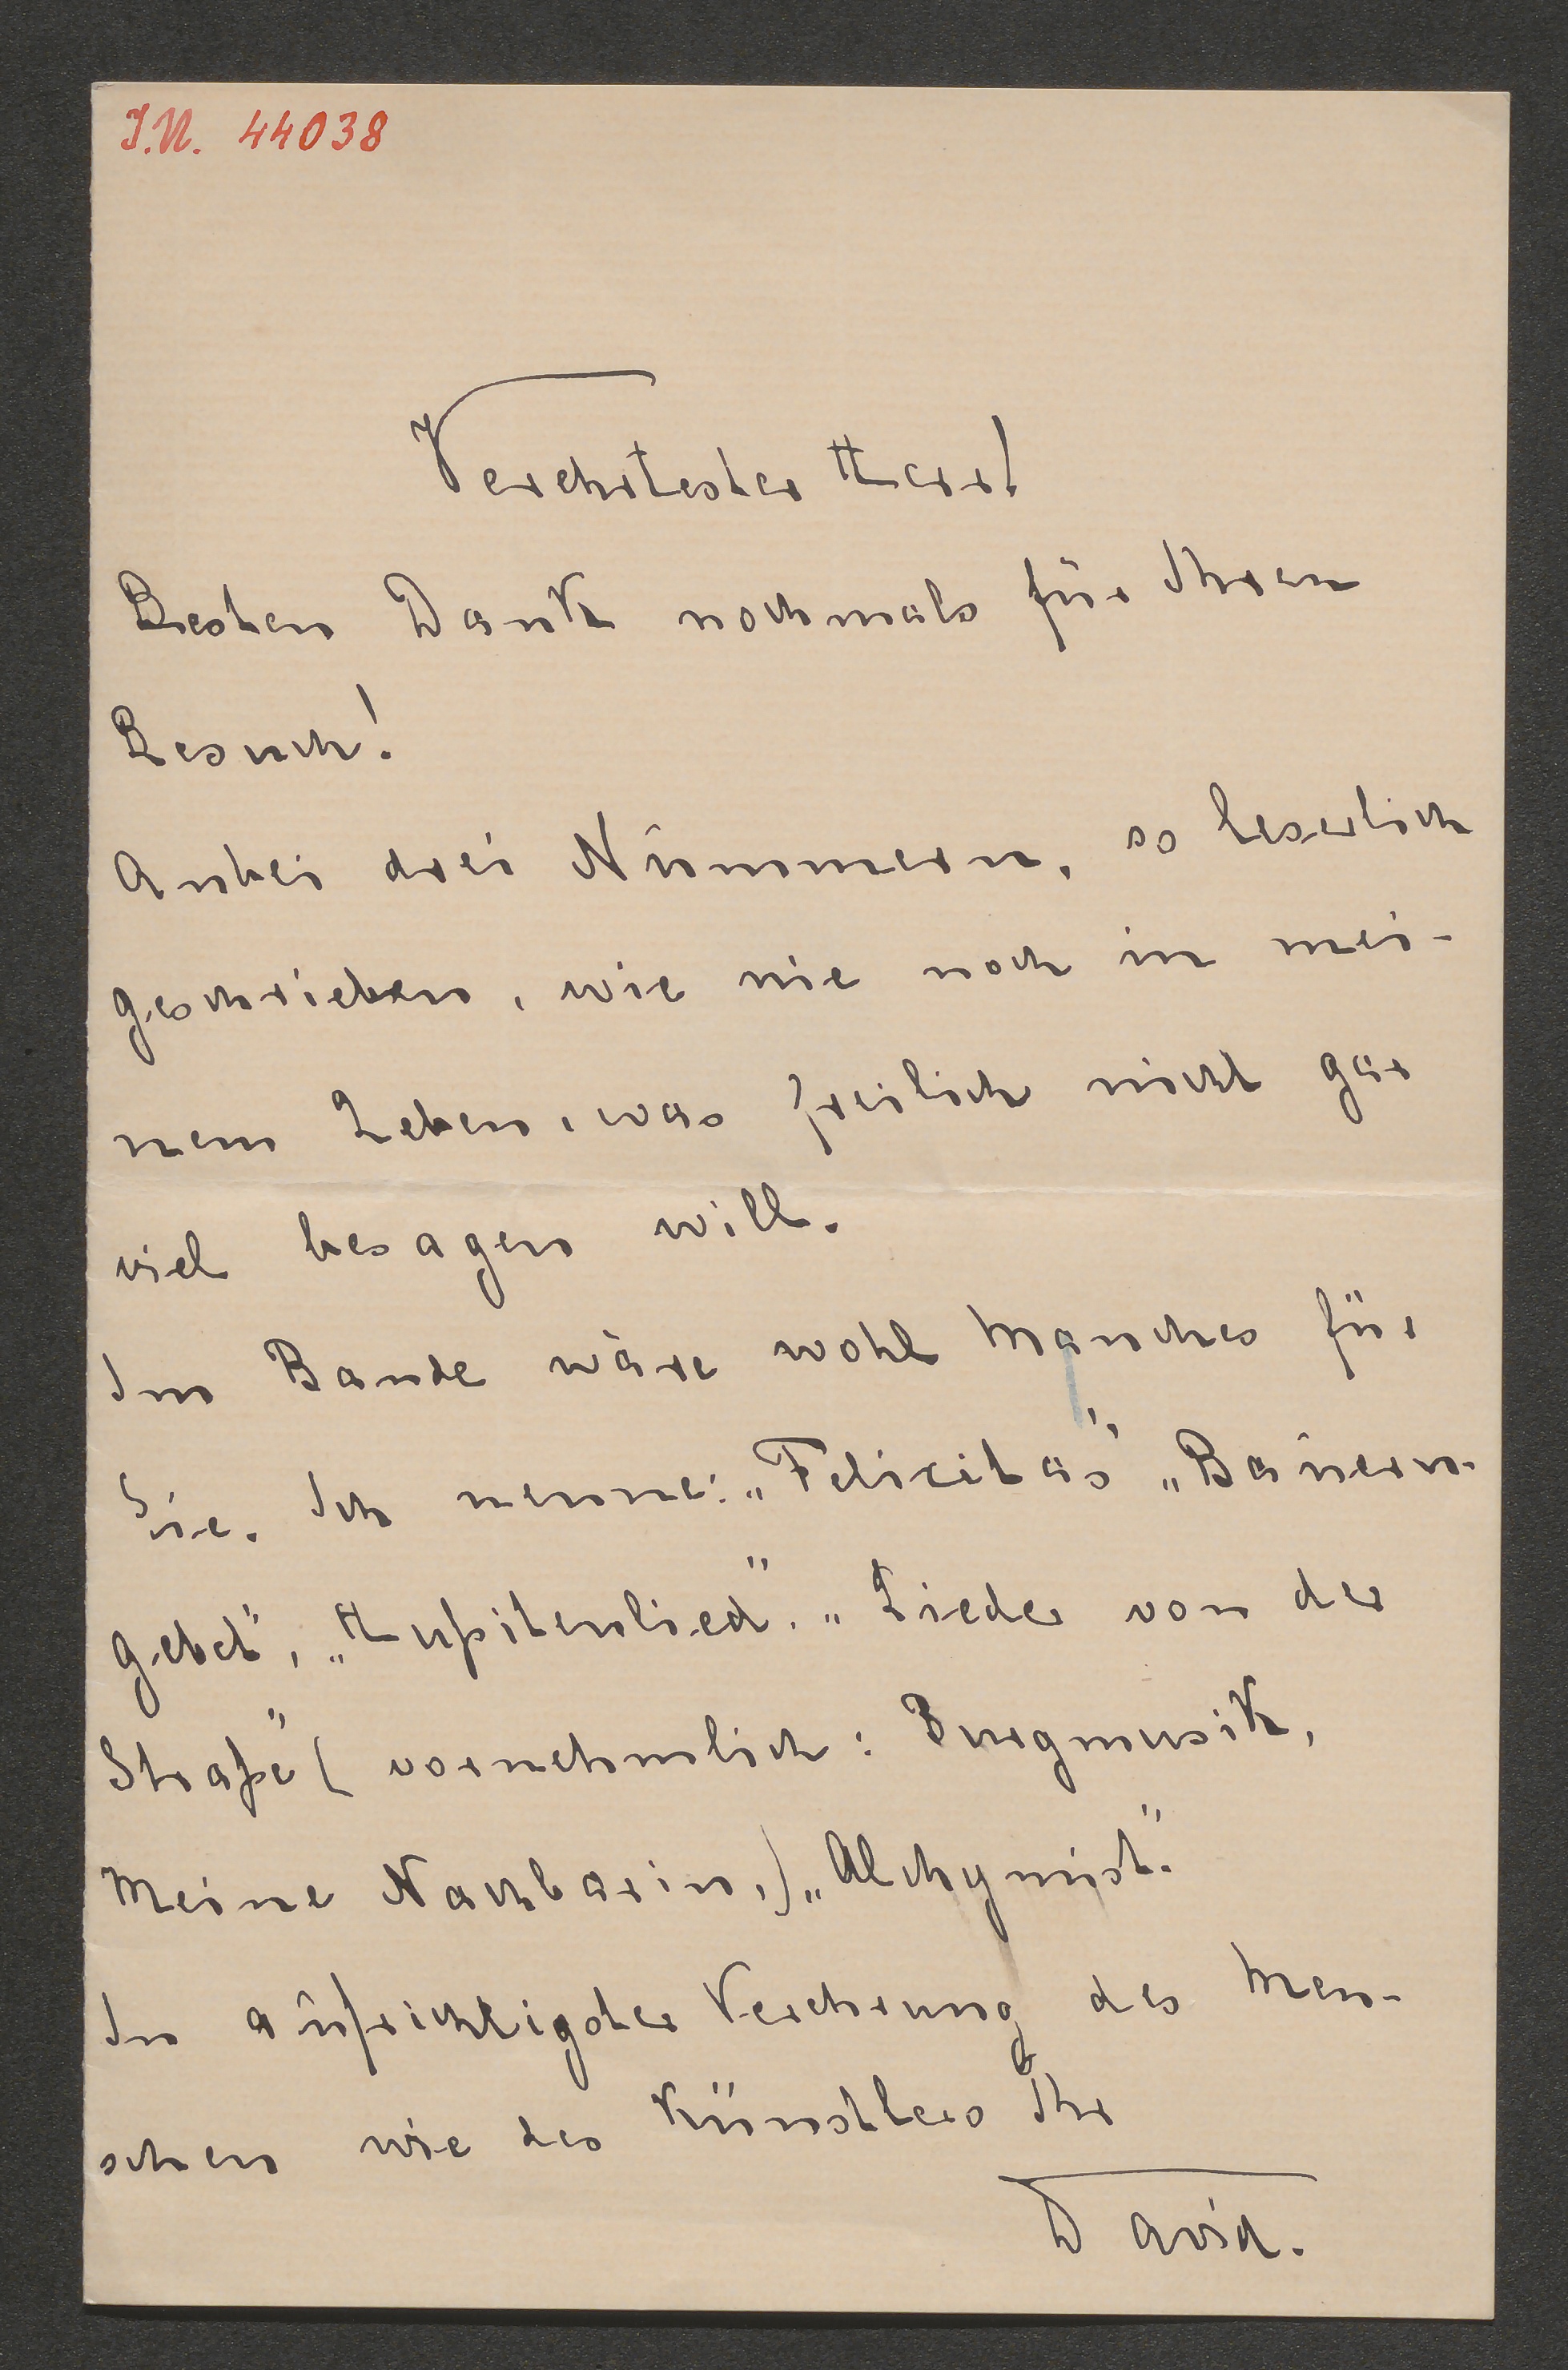 I.N. 44038
Verehrtester Herr!
Besten Dank nochmals für Ihren
Besuch!
Anbei drei Nummern, so leserlich
geschrieben, wie nie noch in mei-
nem Leben, was freilich nicht gar
viel besagen will.
Im Bande wäre wohl Manches für
Sie. Ich nenne: „Felicitas“, „Bauern-
gebet“, „Hußitenlied“. „Lieder von der
Straße“ (vornehmlich: Burgmusik,
Meine Nachbarin,) „Alchymist“.
In aufrichtigster Verehrung des Men-
schen wie des Künstlers Ihr
David.